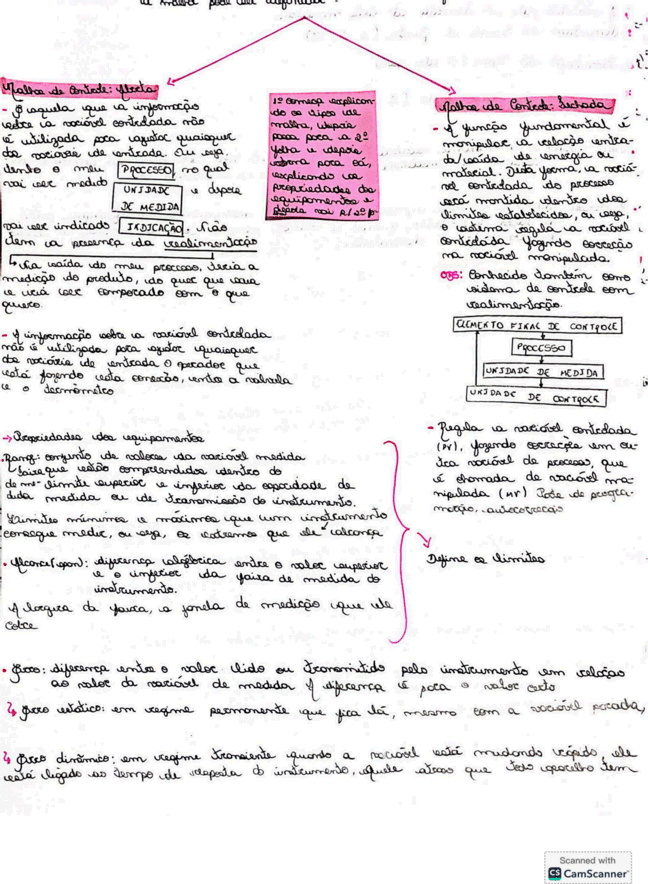 a malha pode ser
Malha de Controle: Aberta
- É aquela que a informação
sobre a variável controlada não
é utilizada para ajustar quaisquer
das variáveis de entrada. Ou seja,
dentro o meu PROCESSO, no qual
vai ser medido UNIDADE DE MEDIDA e depois
vai ser indicado INDICAÇÃO. Não
tem a presença da realimentação
↳ Na saída do meu processo, teria a
medição do produto, do quer que saia
e iria ser comparado com o que
quero.
- A informação sobre a variável controlada
não é utilizada para ajustar quaisquer
das variáveis de entrada o operador que
está fazendo esta conexão, entre a válvula
e o termômetro
1º começa explican-
do os tipos de
malha, depois
passa para a 2º
folha e depois
retorna para cá,
explicando as
propriedades dos
equipamentos e
depois vai p/ 2º
Malha de Controle: fechada
- A função fundamental é
manipular a relação entra-
da/saída de energia ou
material. Desta forma, a variá-
vel controlada do processo
será mantida dentro dos
limites estabelecidos, ou seja,
o sistema regula a variável
controlada fazendo correção
na variável manipulada.
OBS: Conhecido também como
sistema de controle com
realimentação.
ELEMENTO FINAL DE CONTROLE
PROCESSO
UNIDADE DE MEDIDA
UNIDADE DE CONTROLE
- Regula a variável controlada
(PV), fazendo correções em ou-
tra variável de processo, que
é chamada de variável ma-
nipulada (MV) Pode de progra-
mação, autocorreção
→ Propriedades dos equipamentos
Rang: conjunto de valores da variável medida
faixa que estão compreendidos dentro do
de me- limite superior e inferior da capacidade de
dida medida ou de transmissão do instrumento.
Limites mínimos e máximos que um instrumento
consegue medir, ou seja, os extremos que ele alcança
• Alcance (span): diferença algébrica entre o valor superior
e o inferior da faixa de medida do
instrumento.
A largura da faixa, a janela de medição que ele
cobre
Define os limites
• Erro: diferença entre o valor lido ou transmitido pelo instrumento em relação
ao valor da variável de medida A diferença é para o valor certo
↳ Erro estático: em regime permanente que fica lá, mesmo com a variável parada,
↳ Erro dinâmico: em regime transiente quando a variável está mudando rápido, ele
está ligado ao tempo de resposta do instrumento, aquele atraso que todo aparelho tem
Scanned with
CS CamScanner